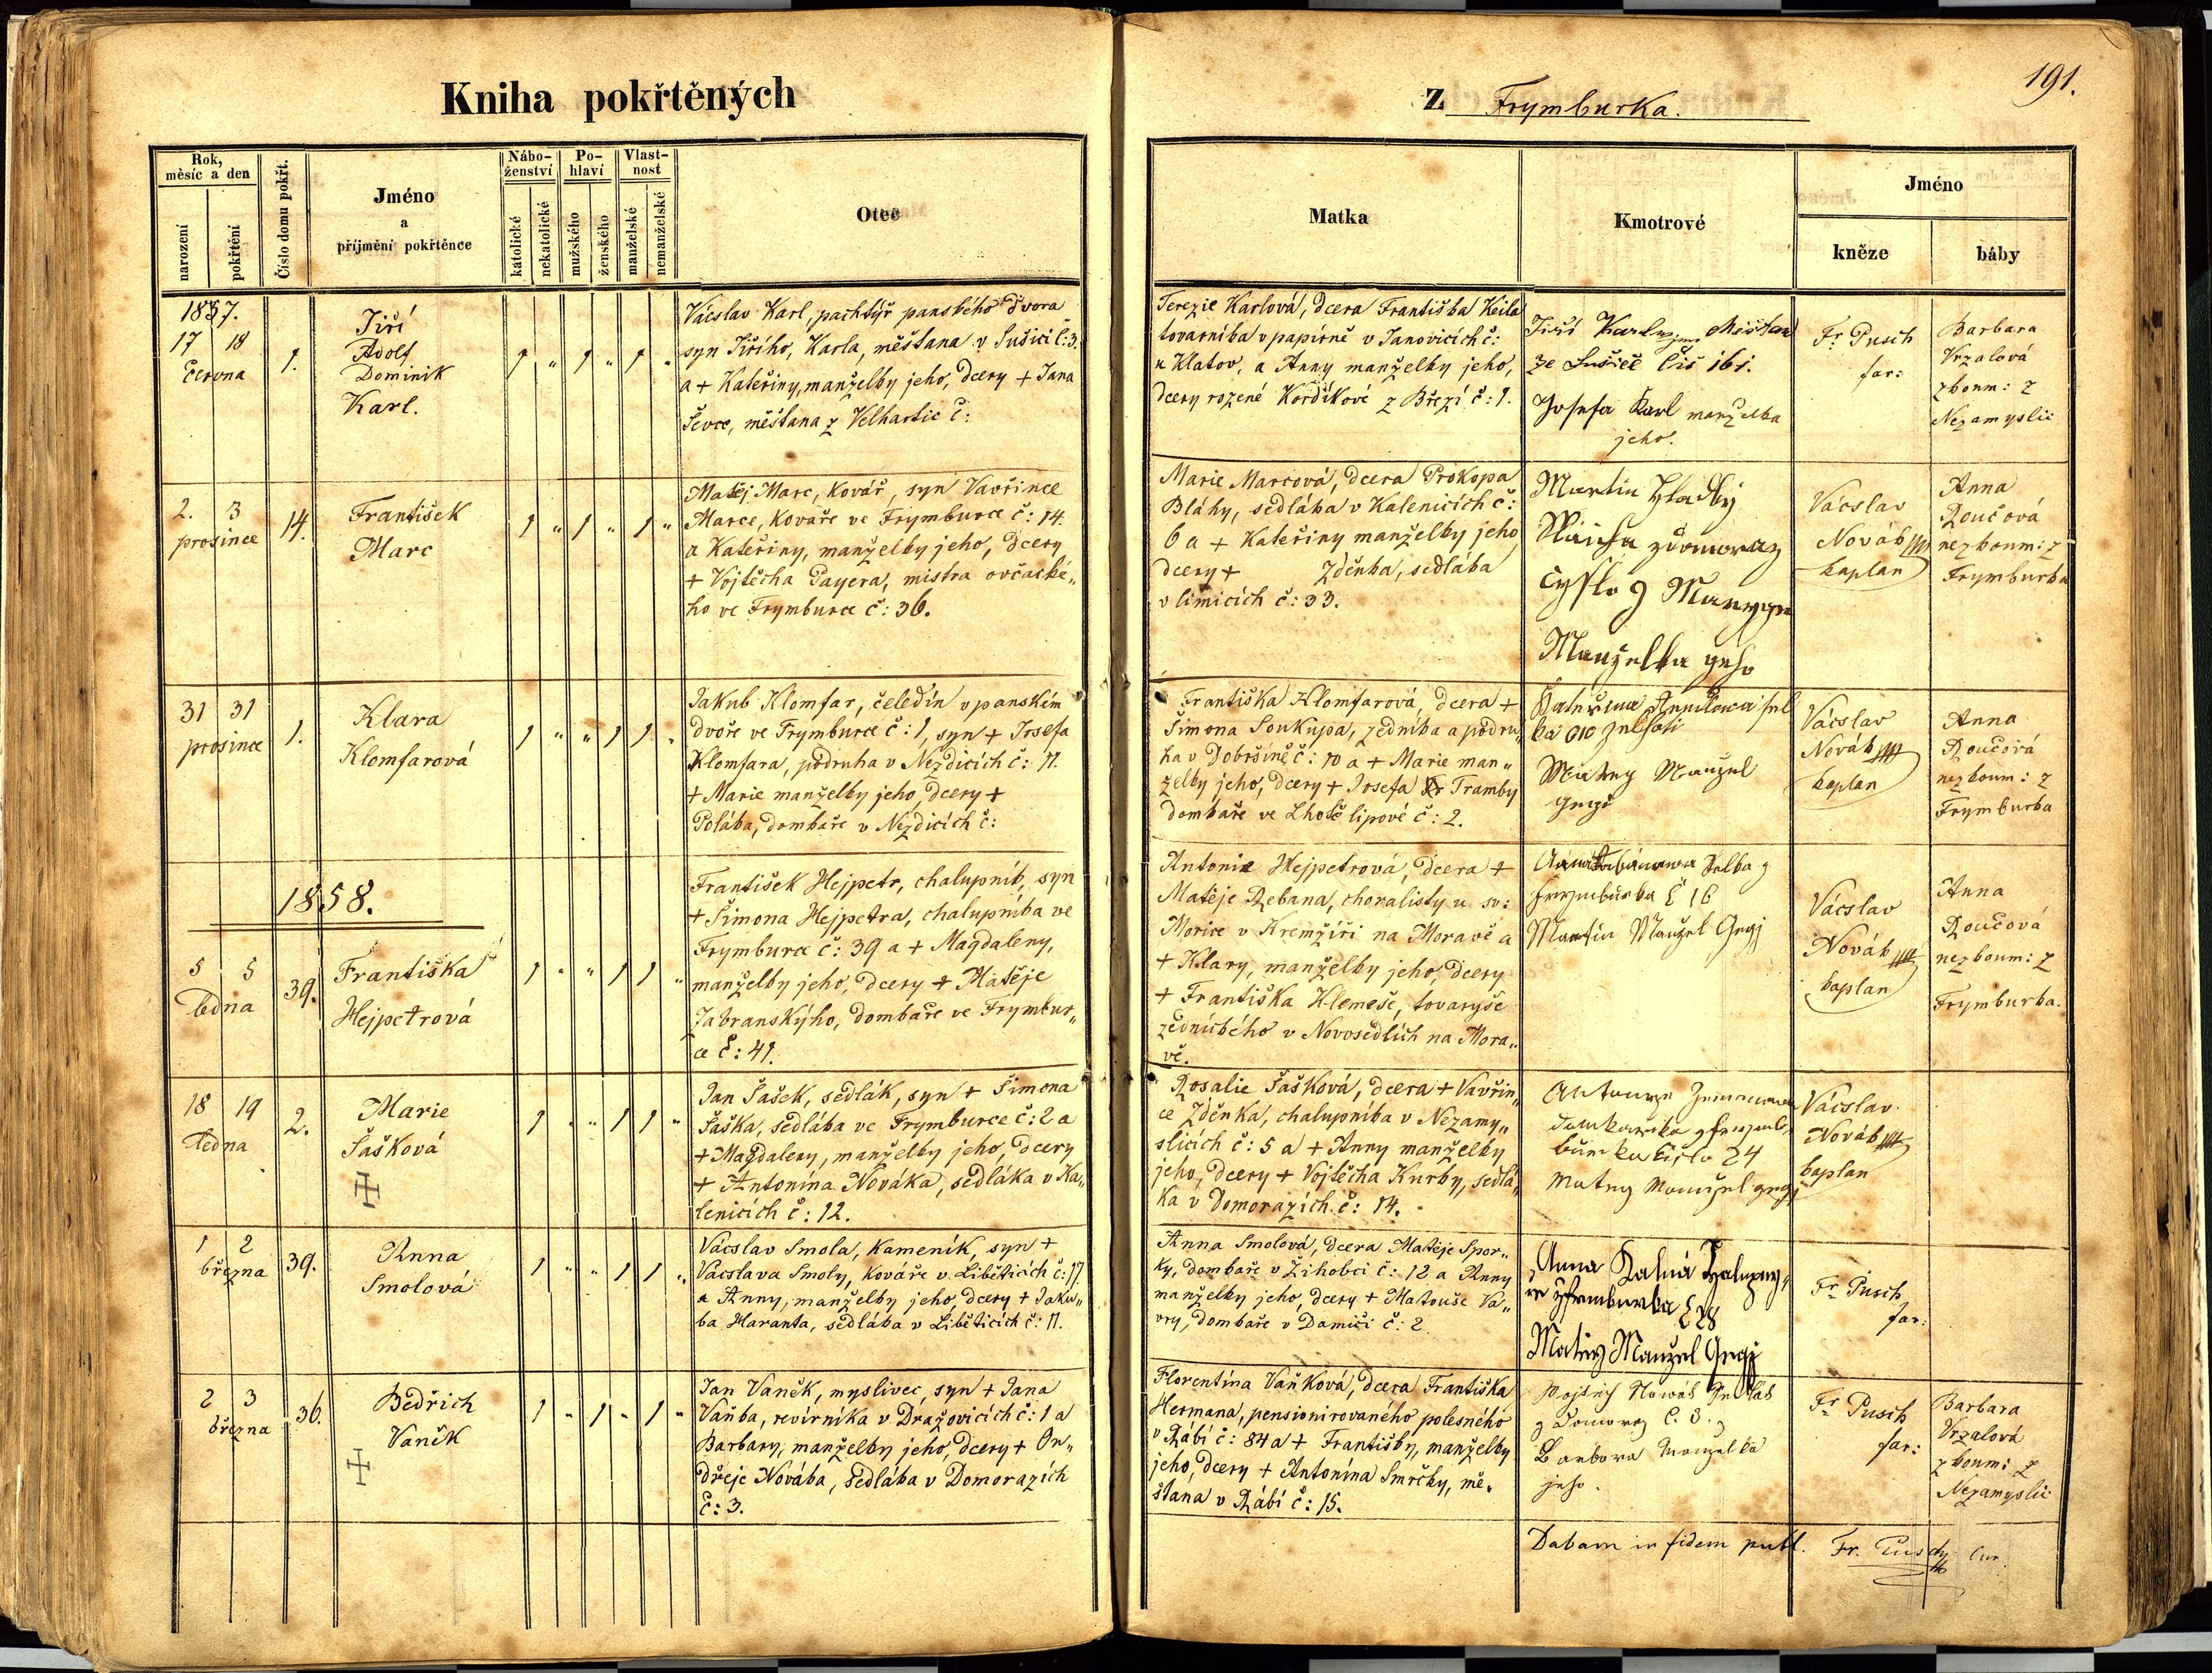 Kniha pokřtěných
z Frymburka.
191.
Rok,
měsíc a den
narození
pokřtění
Číslo domu pokřt.
Jméno
a
příjmění pokřtěnce
Nábo-
ženství
katolické
nekatolické
Po-
hlaví
mužského
ženského
Vlast-
nost
manželské
nemanželské
Otec
Matka
Kmotrové
Jméno
kněze
báby
1857.
17 18
června
1.
Jiří
Adolf
Dominik
Karl.
1 „ 1 „ 1 „
Václav Karl, pachtýř panského dvora
syn Jiřího, Karla, měšťana v Sušici č: 3.
a + Kateřiny, manželky jeho, dcery + Jana
Ševce, měšťana z Velhartic č:
Terezie Karlová, dcera Františka Keila
továrníka v papírně v Janovicích č:
u Klatov, a Anny manželky jeho,
dcery rozené Kordíkové z Březí č: 1.
Jiří Karl Měšťan
ze Sušice čís 161.
Josefa Karl manželka
jeho.
Fr Pusch
far:
Barbara
Vrzalová
zkoum: z
Nezamyslic
2. 3
prosince
14.
František
Marc
1 „ 1 „ 1 „
Matěj Marc, kovář, syn Vavřince
Marce, kováře ve Frymburce č: 14.
a Kateřiny, manželky jeho, dcery
+ Vojtěcha Payera, mistra ovčacké„
ho ve Frymburce č: 36.
Marie Marcová, dcera Prokopa
Bláhy, sedláka v Kalenicích č:
6 a + Kateřiny manželky jeho,
dcery + Zdeňka, sedláka
v límicích č: 33.
Martin Hladký
z domoraz
čyslo 9
Manželka geho
Václav
Novák
kaplan
Anna
Roučová
nezkoum: z
Frymburka
31 31
prosince
1.
Klara
Klomfarová
1 „ „ 1 1 „
Jakub Klomfar, čeledín v panském
dvoře ve Frymburce č: 1, syn + Josefa
Klomfara, podruha v Nezdicích č: 11.
+ Marie manželky jeho, dcery +
Poláka, domkáře v Nezdicích č:
Františka Klomfarová, dcera +
Šimona Soukupa, zedníka a podru„
ha v Dobršíně č: 10 a + Marie man„
želky jeho, dcery + Josefa Tramby
domkáře ve Lhotě lipové č: 2.
Kateřina
Matey Manžel
gegi
Václav
Novák
kaplan
Anna
Roučová
nezkoum: z
Frymburka
1858.
5 5
ledna
39.
Františka
Hejpetrová
1 „ „ 1 1 „
František Hejpetr, chalupník, syn
+ Šimona Hejpetra, chalupníka ve
Frymburce č: 39 a + Magdaleny,
manželky jeho, dcery + Matěje
Zabranskýho, domkáře ve Frymbur„
ce č: 41.
Antonie Hejpetrová, dcera +
Matěje Řebana, choralisty u sv:
Morice v Kremžíři na Moravě a
+ Klary, manželky jeho, dcery
+ Františka Klemeše, tovaryše
zednického v Novosedlích na Mora„
vě.
frymburka č 16
Martin Manžel Gegj
Václav
Novák
kaplan
Anna
Roučová
nezkoum: z
Frymburka.
18 19
ledna
2.
Marie
Šašková
1 „ „ 1 1 „
Jan Šašek, sedlák, syn + Šimona
Šaška, sedláka ve Frymburce č: 2 a
+ Magdaleny, manželky jeho, dcery
+ Antonína Nováka, sedláka v Ka„
lenicích č: 12.
Rosalie Šašková, dcera + Vavřin„
ce Zdeňka, chalupníka v Nezamy„
slicích č: 5 a + Anny manželky
jeho, dcery + Vojtěcha Kurky, sedlá„
ka v Domorazích č: 14.
číslo 24
Matey Manžel gegi
Václav
Novák
kaplan
1 2
března
39.
Anna
Smolová
1 „ „ 1 1 „
Václav Smola, kameník, syn +
Václava Smoly, kováře v Liběticích č: 17.
a Anny, manželky jeho, dcery + Jaku„
ba Haranta, sedláka v Liběticích č: 11.
Anna Smolová, dcera Matěje Spor„
ky, domkáře v Žihobci č: 12 a Anny
manželky jeho, dcery + Matouše Vá„
vry, domkáře v Damíči č: 2.
Anna Kalná
č 28
Matieg Manžel Gegj
Fr Pusch
far:
2 3
března
36.
Bedřich
Vaněk
1 „ 1 „ 1 „
Jan Vaněk, myslivec, syn + Jana
Vaňka, revírníka v Dražovicích č: 1 a
Barbary, manželky jeho, dcery + On„
dřeje Nováka, sedláka v Domorazích
č: 3.
Florentina Vaňková, dcera Františka
Hermana, pensionirovaného polesného
v Rábí č: 84 a + Františky, manželky
jeho, dcery + Antonína Smrčky, mě„
šťana v Rábí č: 15.
Vojtěch Nowák Sedlák
z Domoraz č. 3.
Barbora Manželka
jeho.
Fr Pusch
far:
Barbara
Vrzalová
zkoum: z
Nezamyslic
Dabam in fidem publ. Fr. Pusch Cur.